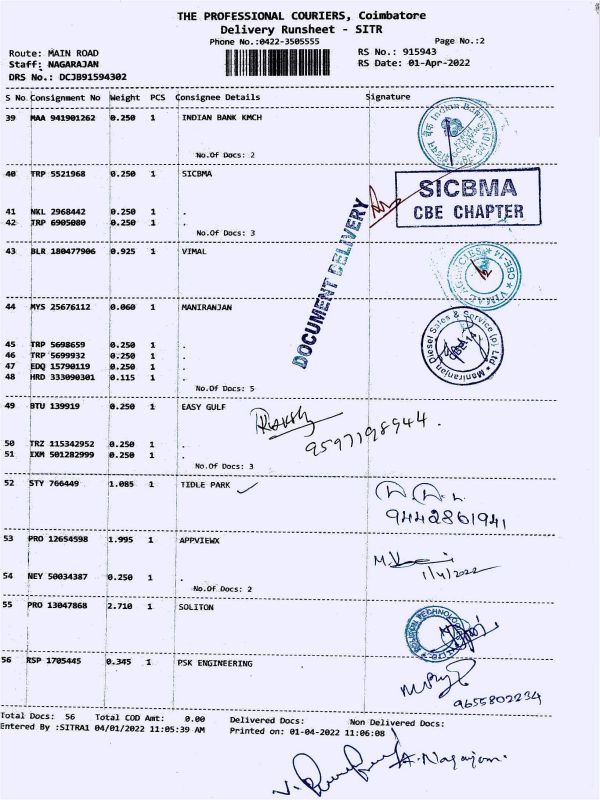 THE PROFESSIONAL COURIERS, Coimbatore
Delivery Runsheet - SITR
Phone No.:0422-3505555 Page No.:2
Route: MAIN ROAD RS No.: 915943
Staff: NAGARAJAN RS Date: 01-Apr-2022
DRS No.: DCJB91594302
S No Consignment No Weight PCS Consignee Details Signature
39 MAA 941901262 0.250 1 INDIAN BANK KMCH
No.Of Docs: 2
40 TRP 5521968 0.250 1 SICBMA
SICBMA
CBE CHAPTER
41 NKL 2968442 0.250 1 .
42 TRP 6905080 0.250 1 .
No.Of Docs: 3
DOCUMENT DELIVERY
43 BLR 180477906 0.925 1 VIMAL
44 MYS 25676112 0.060 1 MANIRANJAN
Maniranjan Diesel Sales & Service (p) Ltd
45 TRP 5698659 0.250 1 .
46 TRP 5699932 0.250 1 .
47 EDQ 15790119 0.250 1 .
48 HRD 333090301 0.115 1 .
No.Of Docs: 5
49 BTU 139919 0.250 1 EASY GULF
9597198944.
50 TRZ 115342952 0.250 1 .
51 IXM 501282999 0.250 1 .
No.Of Docs: 3
52 STY 766449 1.085 1 TIDLE PARK
9442861941
53 PRO 12654598 1.995 1 APPVIEWX
1/4/2022
54 NEY 50034387 0.250 1 .
No.Of Docs: 2
55 PRO 13047868 2.710 1 SOLITON
56 RSP 1705445 0.345 1 PSK ENGINEERING
9655802234
Total Docs: 56 Total COD Amt: 0.00 Delivered Docs: Non Delivered Docs:
Entered By :SITRA1 04/01/2022 11:05:39 AM Printed on: 01-04-2022 11:06:08
A. Nagarajan.